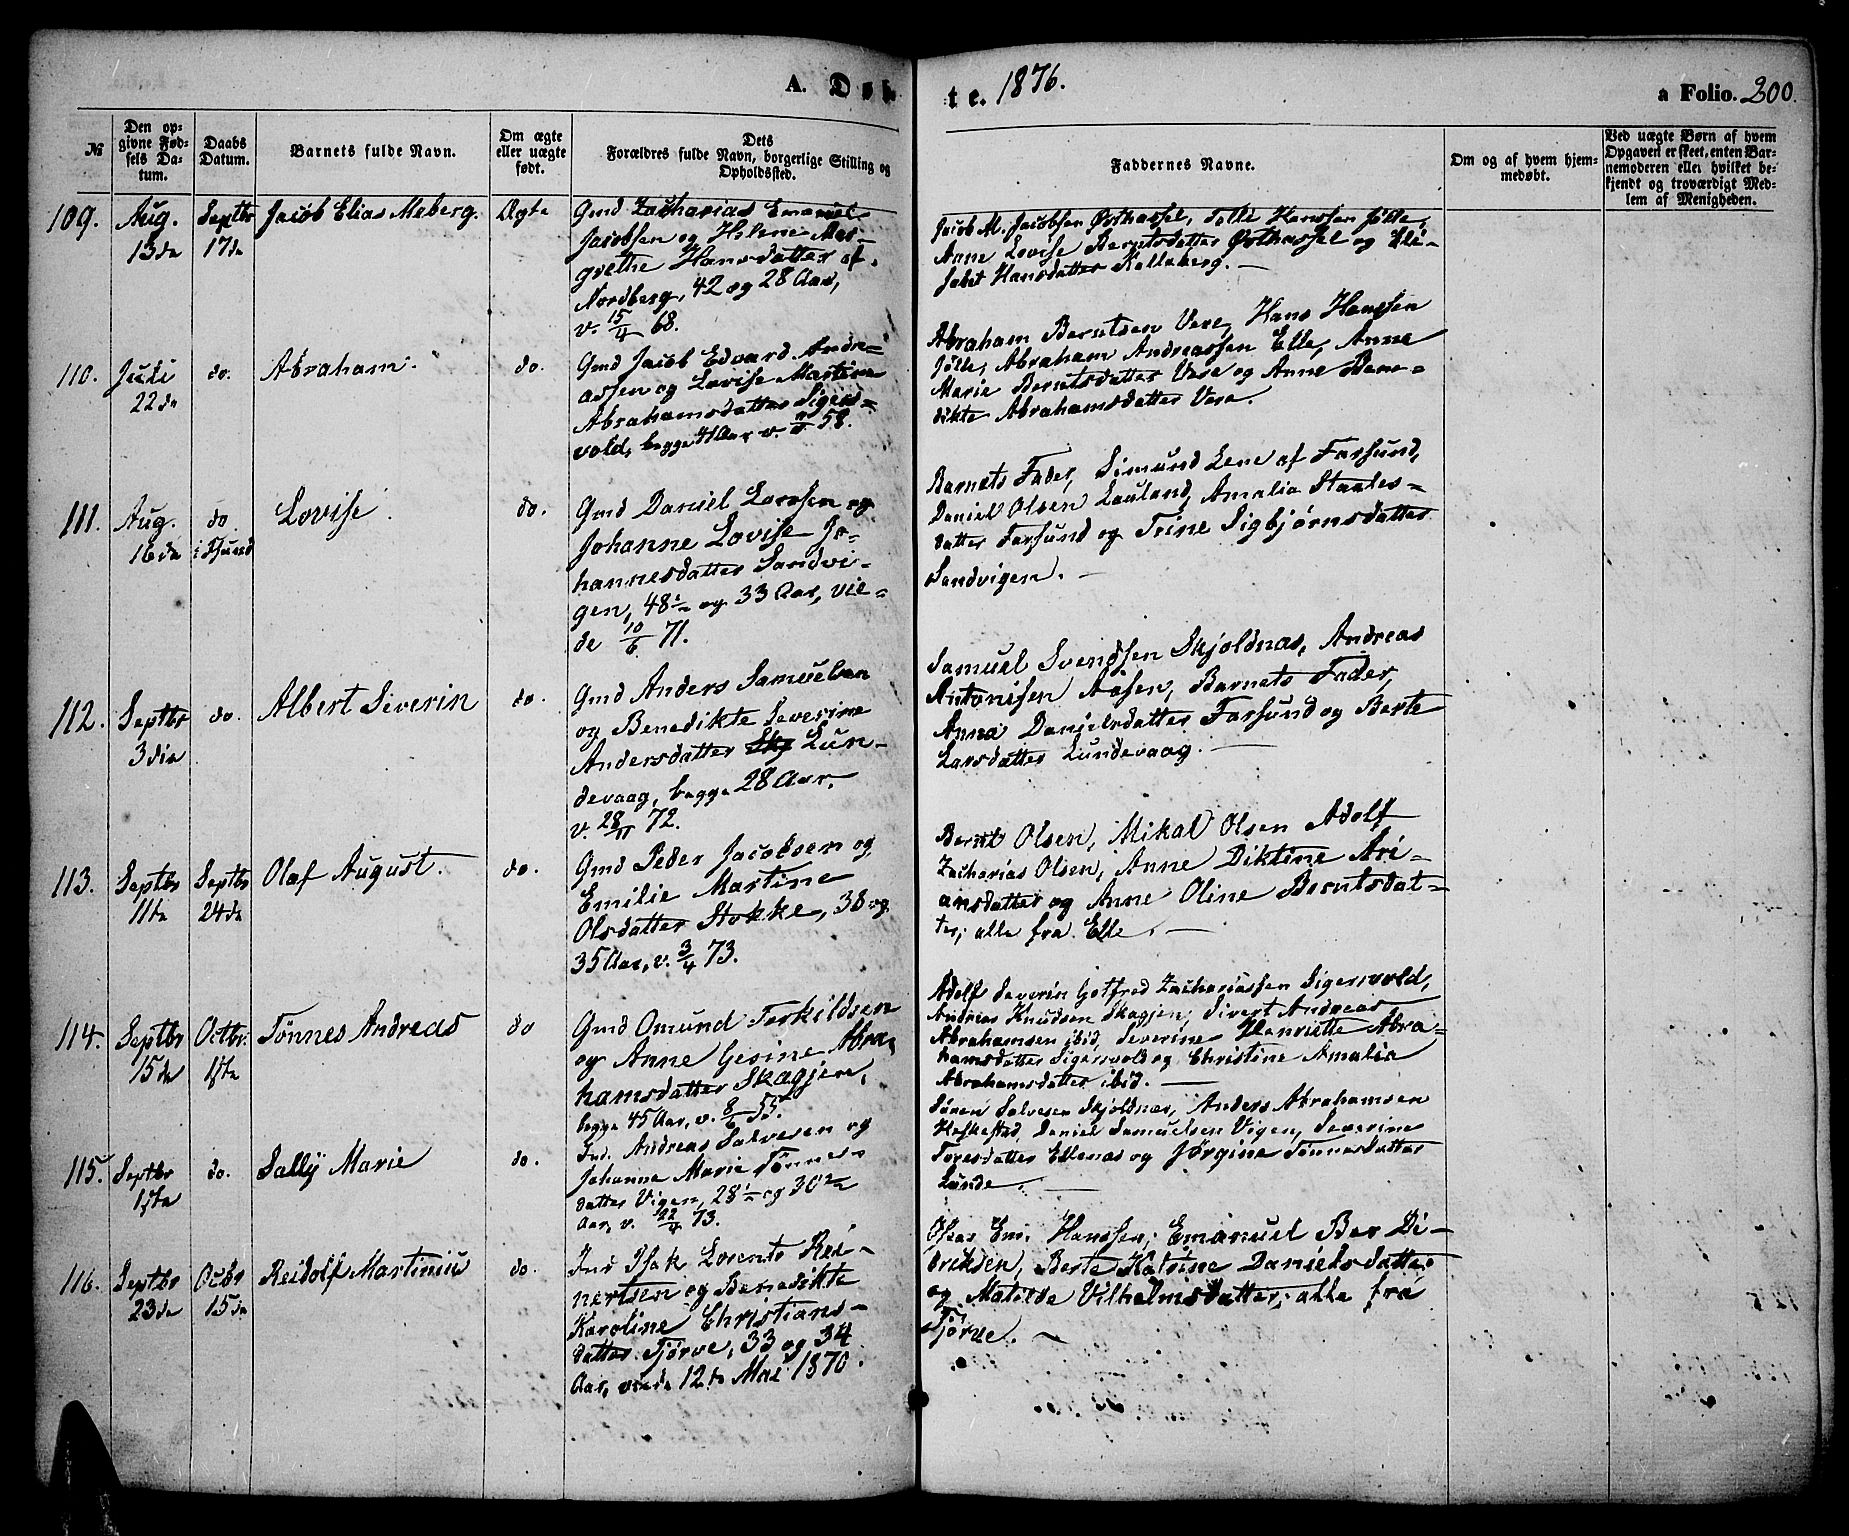 A. Døbte. 1876. a Folio. 200.
№
Den op-
givne Fød-
sels Da-
tum.
Daabs
Datum.
Barnets fulde Navn.
Om ægte
eller uægte
født.
Dets
Forældres fulde Navn, borgerlige Stilling og
Opholdssted.
Faddernes Navne.
Om og af hvem hjem-
medøbt.
Ved uægte Børn af hvem
Opgaven er skeet, enten Bar-
nemoderen eller hvilket be-
kjendt og troværdigt Med-
lem af Menigheden.
109. Aug. 13da Septbr 17da Jacob Elias Meberg. Ægte
Gmd Zacharias Emanuel
Jacobsen og Helene Mar-
grethe Hansdatter af
Nordberg, 42 og 28 Aar,
v. 15/4 68.
Jacob M. Jacobsen Østhassel, Tolle Hanssen Jølle,
Anne Lovise Berntsdatter Østhassel og Eli-
sabet Hansdatter Kalleberg. —
110. Juli 22da do. Abraham. do.
Gmd Jacob Edvard Andre-
assen og Lovise Martine
Abrahamsdatter Sigers-
vold, begge 41 Aar v. 58.
Abraham Berntsen Vere, Hans Hanssen
Jølle, Abraham Andreassen Elle, Anne
Marie Berntsdatter Vere og Anne Bene-
dikte Abrahamsdatter Vere.
111. Aug. 16da do. i Fsund Lovise. do.
Gmd Daniel Larssen og
Johanne Lovise Jo-
hannesdatter Sandvi-
gen, 48 og 33 Aar, vie-
de 10/6 71.
Barnets Fader, Simund Lene af Farsund,
Daniel Olsen Lauland, Amalia Staales-
datter Farsund og Trine Sigbjørnsdatter
Sandvigen. —
112. Septbr 3die do. Albert Severin do.
Gmd Anders Samuelsen
og Benedikte Severine
Andersdatter Skj Lun-
devaag, begge 28 Aar.
v. 28/11 72.
Samuel Svendsen Skjoldnas, Andreas
Antonisen Aasen, Barnets Fader,
Anna Danielsdatter Farsund og Berte
Larsdatter Lundevaag. —
113. Septbr 11da Septbr 24da Olaf August. do.
Gmd Peder Jacobsen og
Emilie Martine
Olsdatter Stokke, 38 og
35 Aar, v. 3/4 73.
Bernt Olsen, Mikal Olsen Adolf
Zacharias Olsen, Anne Diktine Ari-
ansdatter og Anne Oline Berntsdat-
ter, alle fra Elle. —
114. Septbr 15da Octbr. 1ste Tønnes Andreas do
Gmd Omund Terkildsen
og Anne Gesine Abra-
hamsdatter Skagjen,
begge 45 Aar, v. 8/6 55.
Adolf Severin Gotfred Zachariassen Sigersvold,
Andreas Knudsen Skagjen, Sivert Andreas
Abrahamsen ibid, Severine Henriette Abra-
hamsdatter Sigersvold og Christine Amalia
Abrahamsdatter ibid. —
115. Septbr 1ste do. Sally Marie do.
Ind. Andreas Salvesen og
Johanne Marie Tønnes-
datter Vigen, 28 og 30
Aar, v. 22/4 73.
Søren Salvesen Skjoldnes, Anders Abrahamsen
Heskestad, Daniel Samuelsen Vigen, Severine
Toresdatter Ellenas og Jørgine Tønnesdatter
Lunde. —
116. Septbr 23da Octbr 15da Reidolf Martiniu do.
Ind Isak Lorents Rei-
nertsen og Benedikte
Karoline Christians-
datter Tjørve, 33 og 34
Aar, viede 12te Mai 1870.
Oskar Em. Hanssen, Emanuel Ber Di-
driksen, Berte Katrine Danielsdatter
og Matilde Vilhelmsdatter, alle fra
Tjørve. —